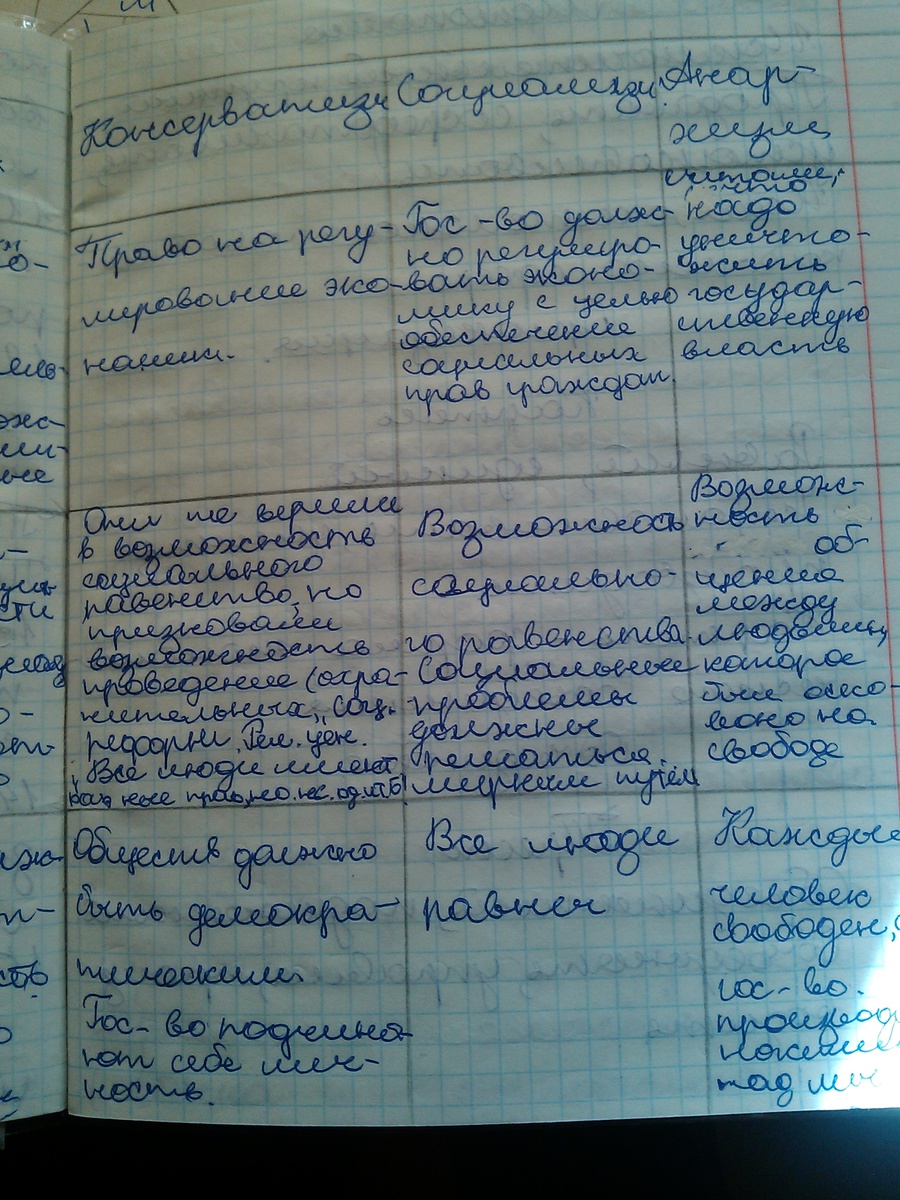 Консерватизм
Социализм
Анар-
хизм
Право на регу-
лирование эко-
номики.
Гос-во долж-
но регулиро-
вать эконо-
мику с целью
обеспечение
социальных
прав граждан.
считали,
что
надо
уничто-
жить
государ-
ственную
власть
Они не верили
в возможность
социального
равенство, но
признавали
возможность
проведение (огра-
нительных, соц.
реформ. Рел. цен.
Все люди имеют
ные права, но не
Возможность
социально-
го равенства.
Социальные
проблемы
должны
решаться
мирным путём
Возмож-
ность
об-
щения
между
людьми,
которое
было осно-
вано на
свободе
Общество должно
быть демокра-
тическим
Гос-во подчиня-
ют себе лич-
ность.
Все люди
равны
Каждый
человек
свободен,
гос-во
над